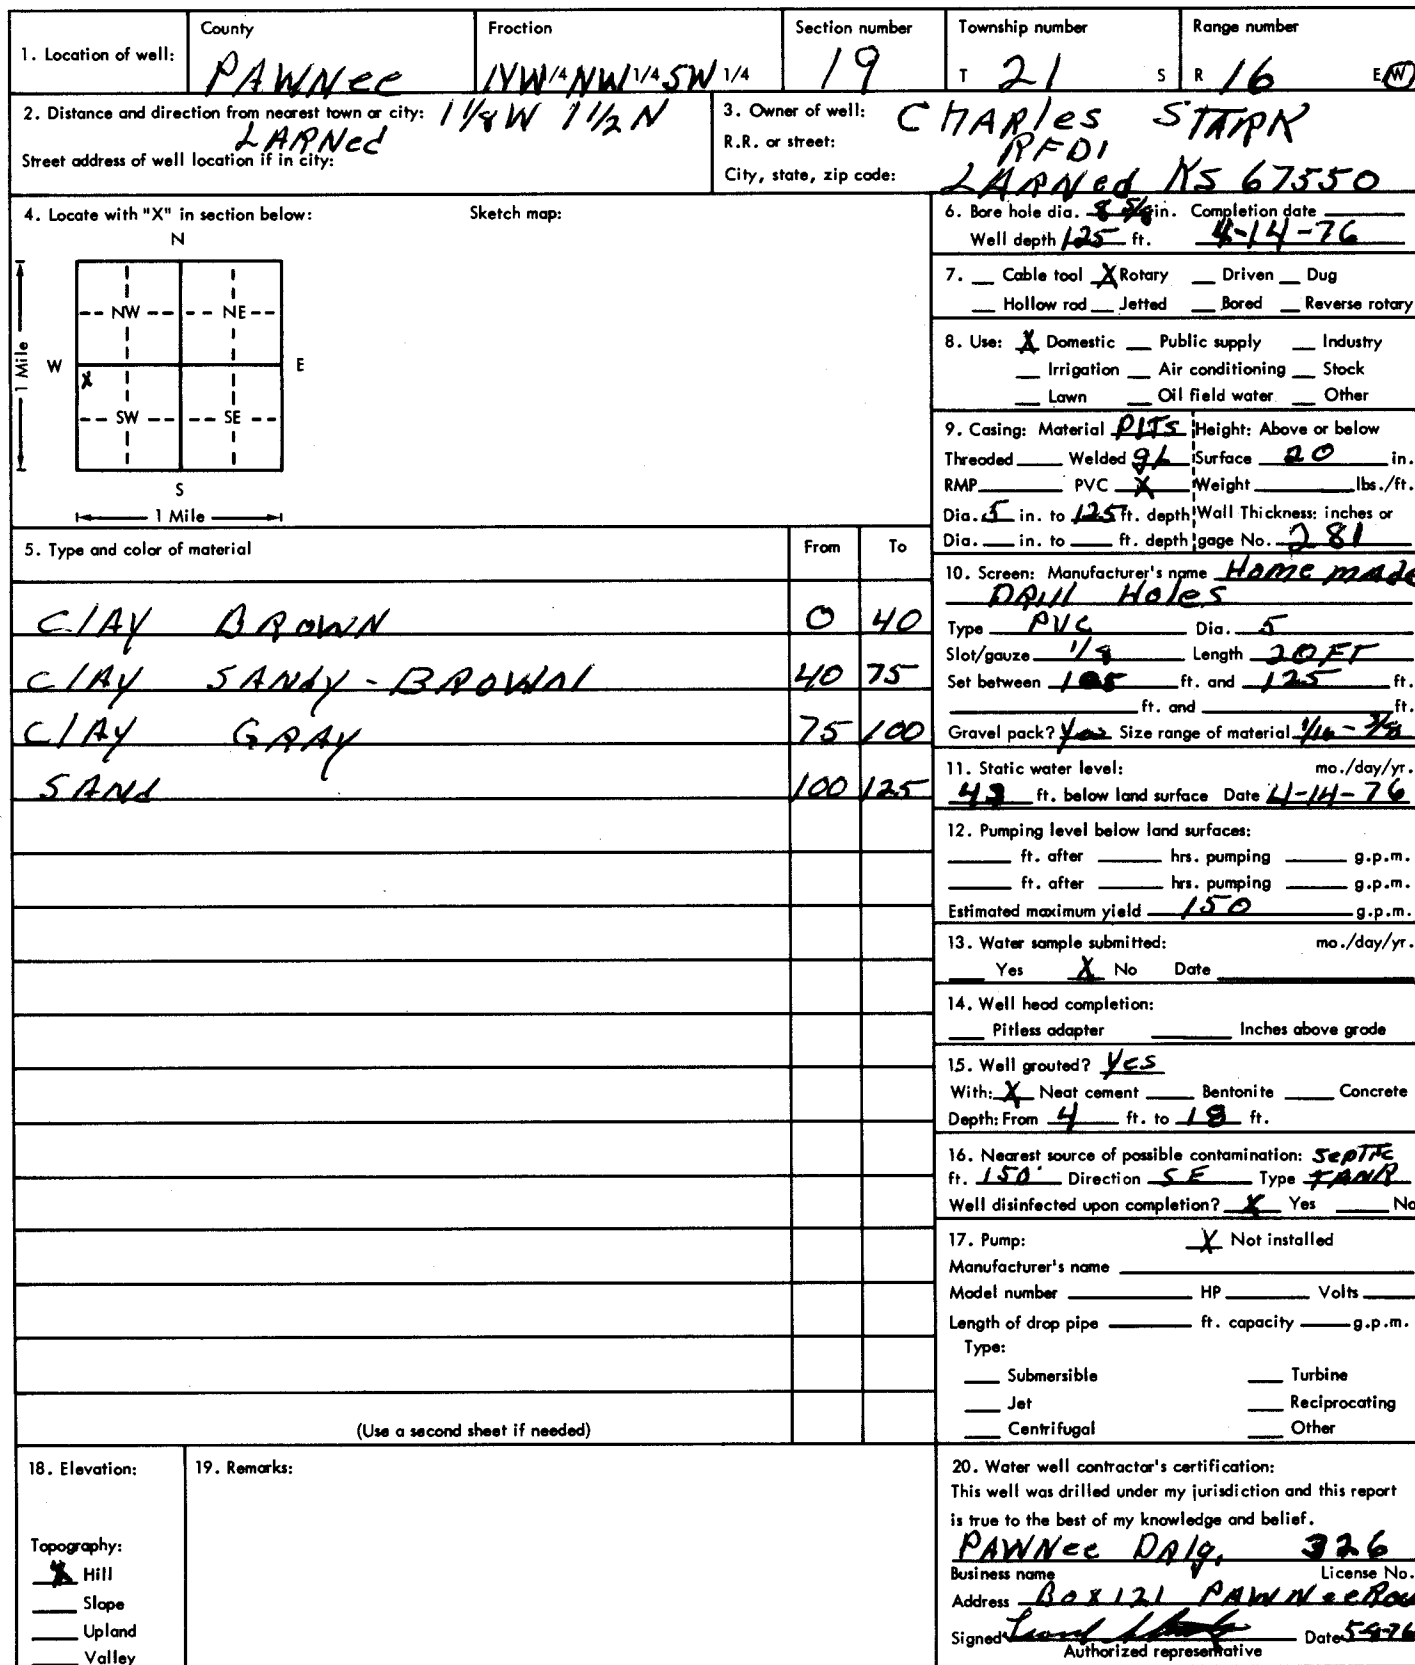 County Froction Section number Township number Range number
1. Location of well: PAWNee NW 1/4 NW 1/4 SW 1/4 19 T 21 S R 16 E/W
2. Distance and direction from nearest town or city: 1 1/8 W 1 1/2 N
LARNed
Street address of well location if in city:
3. Owner of well: CHARles STARK
R.R. or street: RFD1
City, state, zip code: LARNed KS 67550
4. Locate with "X" in section below: Sketch map:
N
NW NE
W E
X
SW SE
S
1 Mile
1 Mile
5. Type and color of material From To
ClAY BROWN 0 40
ClAY SANdY - BROWN 40 75
ClAY GRAY 75 100
SANd 100 125
(Use a second sheet if needed)
6. Bore hole dia. 8 5/8 in. Completion date
Well depth 125 ft. 4-14-76
7. Cable tool X Rotary Driven Dug
Hollow rod Jetted Bored Reverse rotary
8. Use: X Domestic Public supply Industry
Irrigation Air conditioning Stock
Lawn Oil field water Other
9. Casing: Material Height: Above or below
Threaded Welded gL Surface 20 in.
RMP PVC X Weight lbs./ft.
Dia. 5 in. to 125 ft. depth Wall Thickness: inches or
Dia. in. to ft. depth gage No. 281
10. Screen: Manufacturer's name Home made
DRill Holes
Type PVC Dia. 5
Slot/gauze Length 20 FT
Set between 105 ft. and 125 ft.
ft. and ft.
Gravel pack? Yes Size range of material 1/16 - 3/8
11. Static water level: mo./day/yr.
ft. below land surface Date 4-14-76
12. Pumping level below land surfaces:
ft. after hrs. pumping g.p.m.
ft. after hrs. pumping g.p.m.
Estimated maximum yield 150 g.p.m.
13. Water sample submitted: mo./day/yr.
Yes X No Date
14. Well head completion:
Pitless adapter Inches above grade
15. Well grouted? Yes
With: X Neat cement Bentonite Concrete
Depth: From 4 ft. to 18 ft.
16. Nearest source of possible contamination: SepTic
ft. 150' Direction SE Type TANK
Well disinfected upon completion? X Yes No
17. Pump: X Not installed
Manufacturer's name
Model number HP Volts
Length of drop pipe ft. capacity g.p.m.
Type:
Submersible Turbine
Jet Reciprocating
Centrifugal Other
18. Elevation:
Topography:
X Hill
Slope
Upland
Valley
19. Remarks:
20. Water well contractor's certification:
This well was drilled under my jurisdiction and this report
is true to the best of my knowledge and belief.
PAWNee DRlg. 326
Business name License No.
Address Box 121 PAWNee Roc
Signed Date 5-8-76
Authorized representative